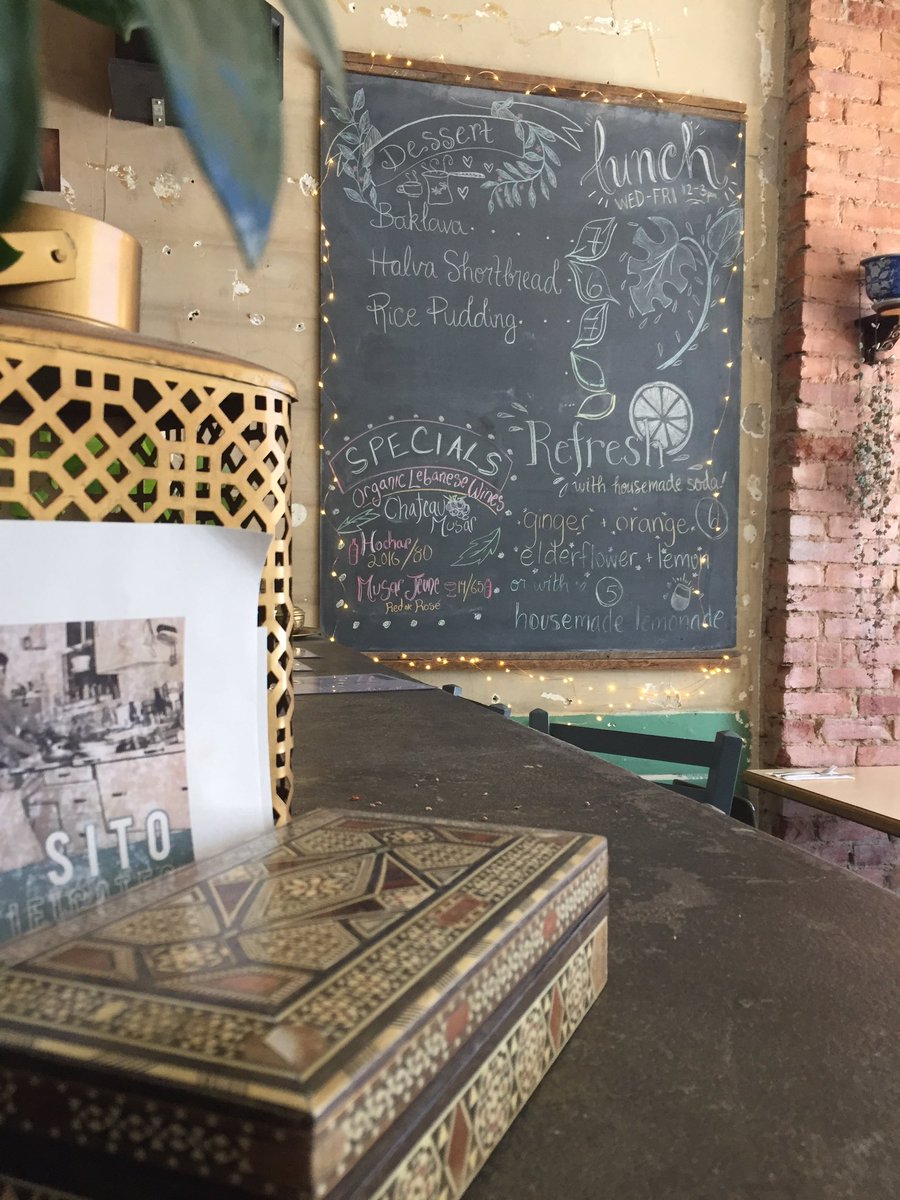 Dessert
Baklava
7
Halva Shortbread
6
Rice Pudding
7
lunch
WED-FRI 12-3pm
SPECIALS
Organic Lebanese Wines
Chateau
Musar
Hochar
2016/80
Musar Jeune 14/65
Red or Rosé
Refresh
with housemade soda!
ginger + orange 6
elderflower + lemon
or with 5
housemade lemonade
SITO